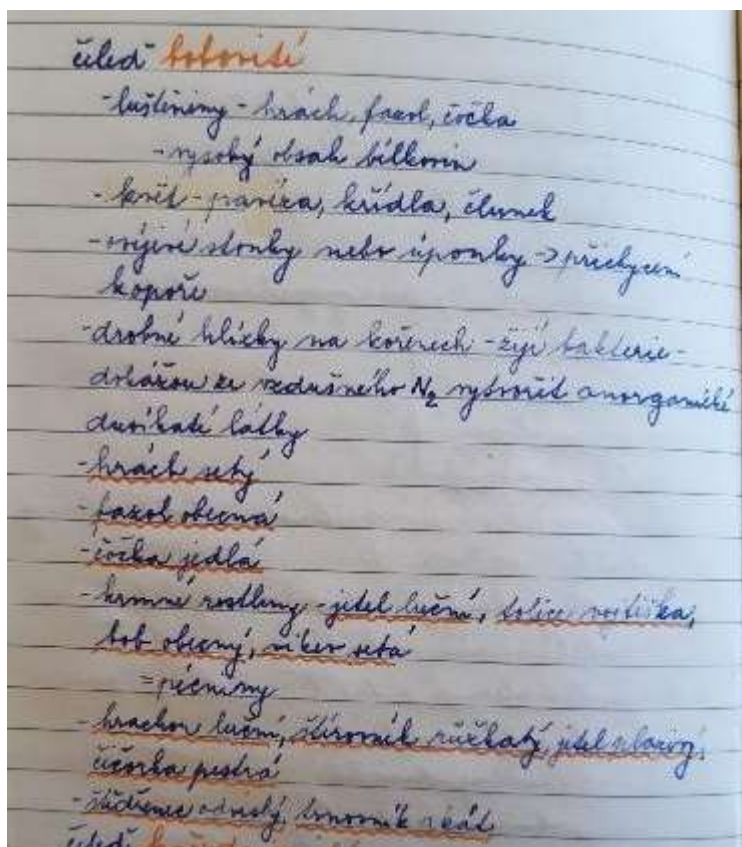 čeleď bobovité
-luštěniny - hrách, fazol, čočka
- vysoký obsah bílkovin
- květ - pavéza, křídla, člunek
- ovíjivé stonky nebo úponky -> přichycení
k opoře
- drobné hlízky na kořenech - žijí bakterie -
dokážou ze vzdušného N₂ vytvořit anorganické
dusíkaté látky
- hrách setý
- fazol obecná
- čočka jedlá
- krmné rostliny - jetel luční, tolice vojtěška,
bob obecný, vikev setá
= pícniny
- hrachor luční, štírovník růžkatý, jetel plazivý,
čičorka pestrá
- štědřenec odvislý, trnovník akát
čeleď